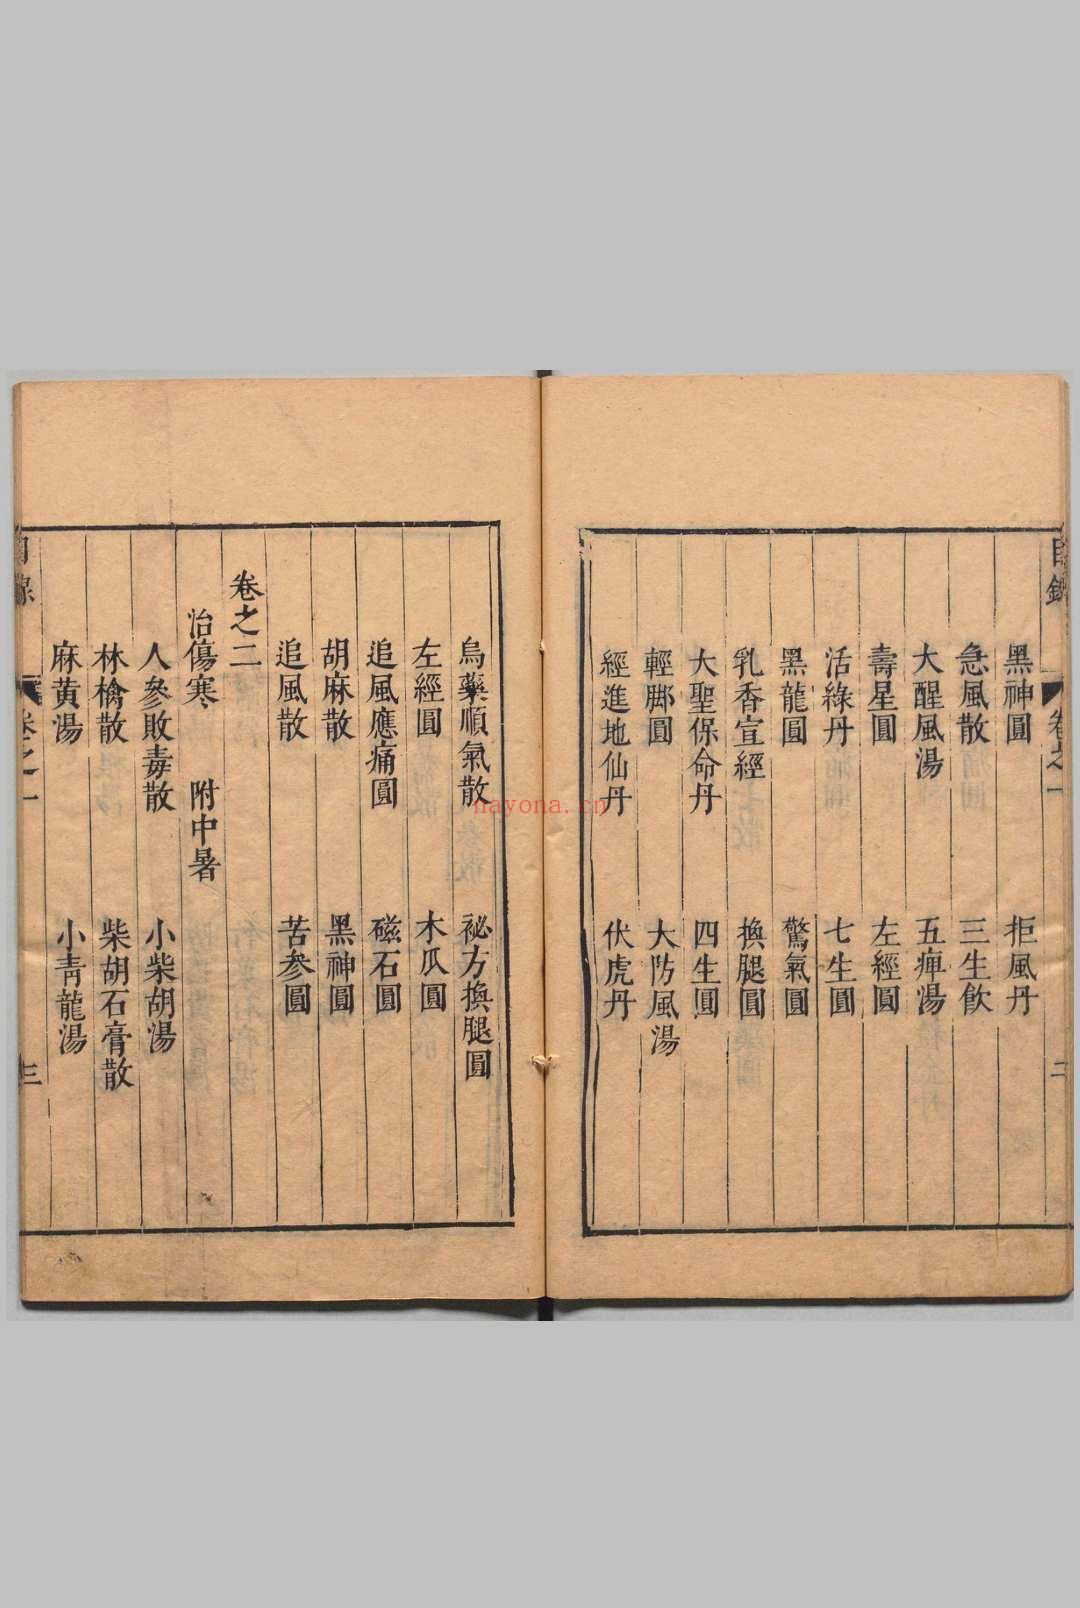 目錄 卷之一 二
黑神圓 拒風丹
急風散 三生飮
大醒風湯 五痺湯
壽星圓 左經圓
活絡丹 七生圓
黑龍圓 驚氣圓
乳香宣經 換腿圓
大聖保命丹 四生圓
輕脚圓 大防風湯
經進地仙丹 伏虎丹
烏藥順氣散 祕方換腿圓
左經圓 木瓜圓
追風應痛圓 磁石圓
胡麻散 黑神圓
追風散 苦參圓
卷之二
治傷寒 附中暑
人參敗毒散 小柴胡湯
林檎散 柴胡石膏散
麻黃湯 小靑龍湯
目錄 卷之一 三
nayona.cn